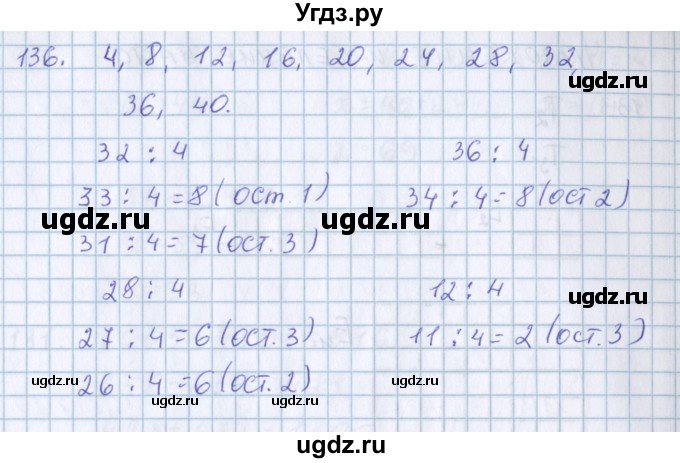 Угдз.ру
136. 4, 8, 12, 16, 20, 24, 28, 32,
ugdz.ru
36, 40.
ugdz.ru
32 : 4 36 : 4
33 : 4 = 8 (ост. 1) 34 : 4 = 8 (ост 2)
ugdz.ru ugdz.ru
31 : 4 = 7 (ост. 3)
28 : 4 12 : 4
ugdz.ru
27 : 4 = 6 (ост. 3) 11 : 4 = 2 (ост. 3)
26 : 4 = 6 (ост. 2)
ugdz.ru ugdz.ru ugdz.ru
ugdz.ru